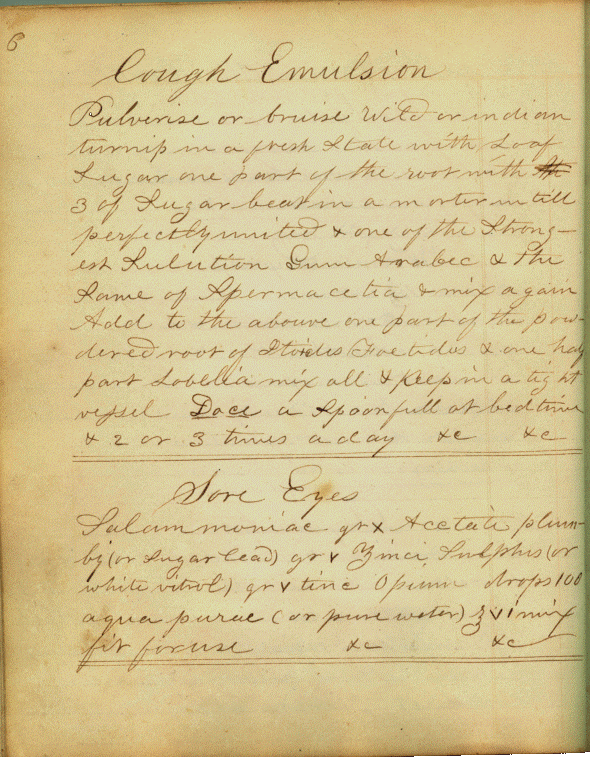 6
Cough Emulsion
Pulverise or bruise Wild or indian
turnip in a fresh State with Loaf
Sugar one part of the root with
3 of Sugar beat in a morter untill
perfectly united & one of the Strong-
est Sulution Gum Arabec & the
Same of Spermacetia & mix again
Add to the abouve one part of the pow-
dered root of Foetidus & one half
part Lobelia mix all & Keep in a tight
vessel Doce a Spoonfull at bedtime
& 2 or 3 times a day &c &c
Sore Eyes
Salammoniac gr x Acetate plum-
bi (or Sugar lead) gr v Zinci Sulphus (or
white vitrol) gr v tinc Opium drops 100
aqua purae (or pure water) ℥ vi mix
fit for use &c &c